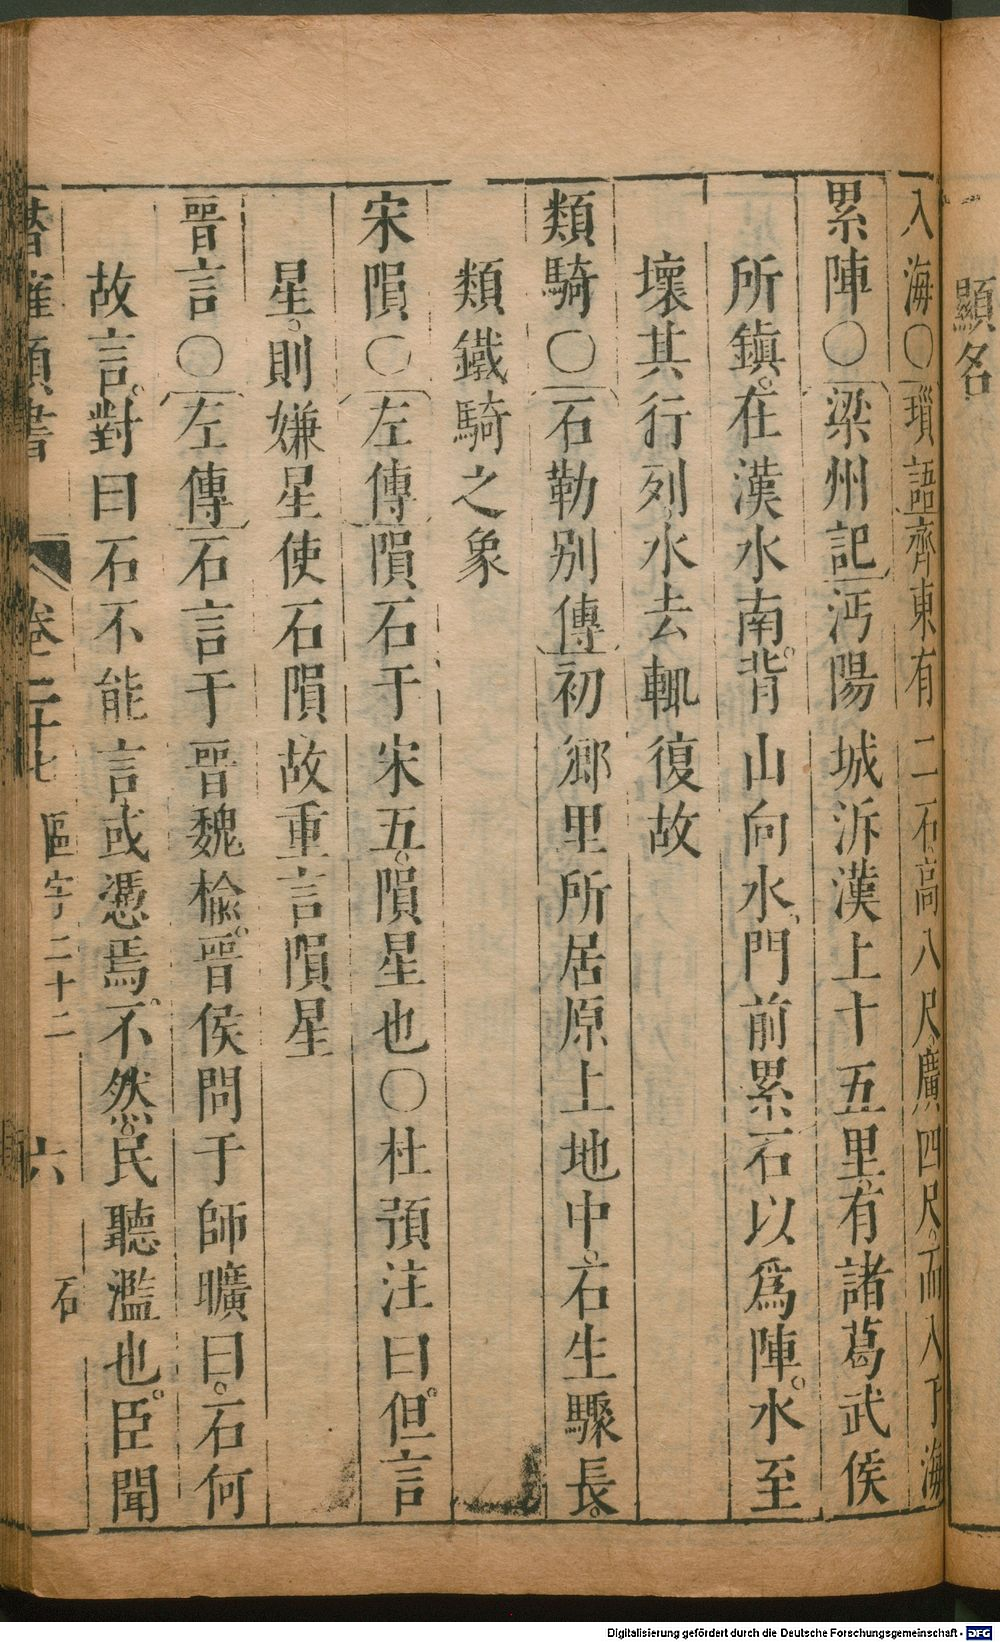 顯名
入海〇瑣語齊東有二石高八尺廣四尺而入于海
累陣〇梁州記沔陽城泝漢上十五里有諸葛武侯
所鎮在漢水南背山向水門前累石以爲陣水至
壞其行列水去輒復故
類騎〇石勒別傳初鄉里所居原上地中石生驟長
類鐵騎之象
宋隕〇左傳隕石于宋五隕星也〇杜預注曰但言
星則嫌星使石隕故重言隕星
晋言〇左傳石言于晋魏榆晋侯問于師曠曰石何
故言對曰石不能言或憑焉不然民聽濫也臣聞
卷二十七 區字二十二 六 石
Digitalisierung gefördert durch die Deutsche Forschungsgemeinschaft - DFG